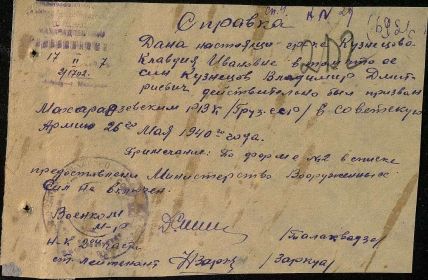 Справка
Дана настоящая гр-ке Кузнецова
Клавдия Ивановне в том что ее
сын Кузнецов Владимир Дмит
риевич, действительно был призван
Махарадзевским РВК /Груз.ССР/ в советскую
Армию 26го Мая 1940го года.
Примечание: По форме №2 в списке
предоставлении Министерство Вооруженных
Сил не включен.
Военком
М-р /Талаквадзе/
Н-к части
ст. лейтенант /Заркуа/